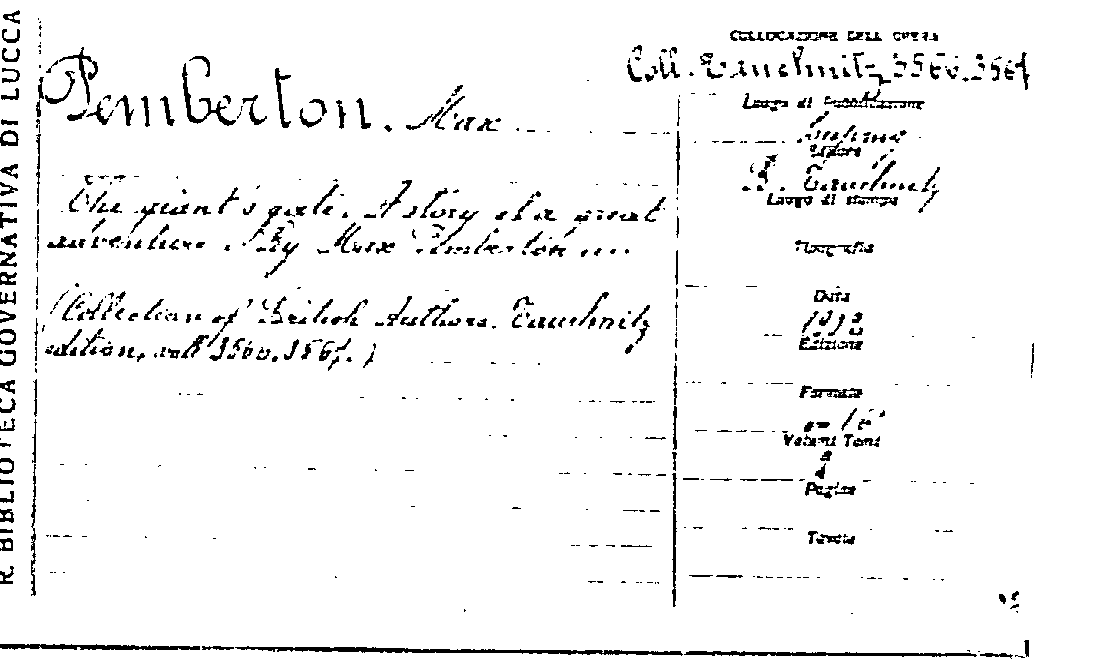 R. BIBLIOTECA GOVERNATIVA DI LUCCA
COLLOCAZIONE DELL'OPERA
Coll. Tauchnitz 3566.3567
Pemberton. Max
Luogo di pubblicazione
Editore
B. Tauchnitz
Luogo di stampa
The giant's gate. A story of a great
adventure. By Max Pemberton ...
Tipografia
(Collection of British Authors. Tauchnitz
edition, voll 3566.3567.)
Data
Edizione
Formato
-16°
Volumi Tomi
Pagine
Tavole